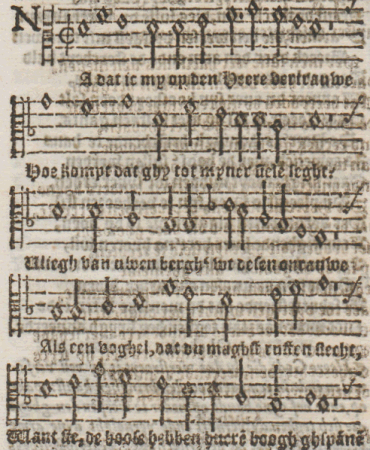 NA dat ic my op den Heere vertrauwe
Hoe kompt dat ghy tot myner siele seght:
Vliegh van uwen bergh' wt desen onrauwe
Als een voghel, dat du maghst rusten slecht,
Want sie, de boose hebben hueré boogh ghespāné